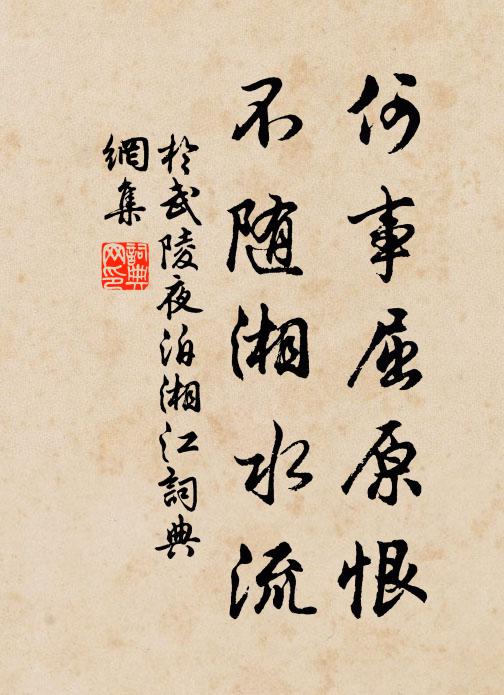 何事屈原恨
不随湘水流
於武陵夜泊湘江詞典
網集
詞典
网印